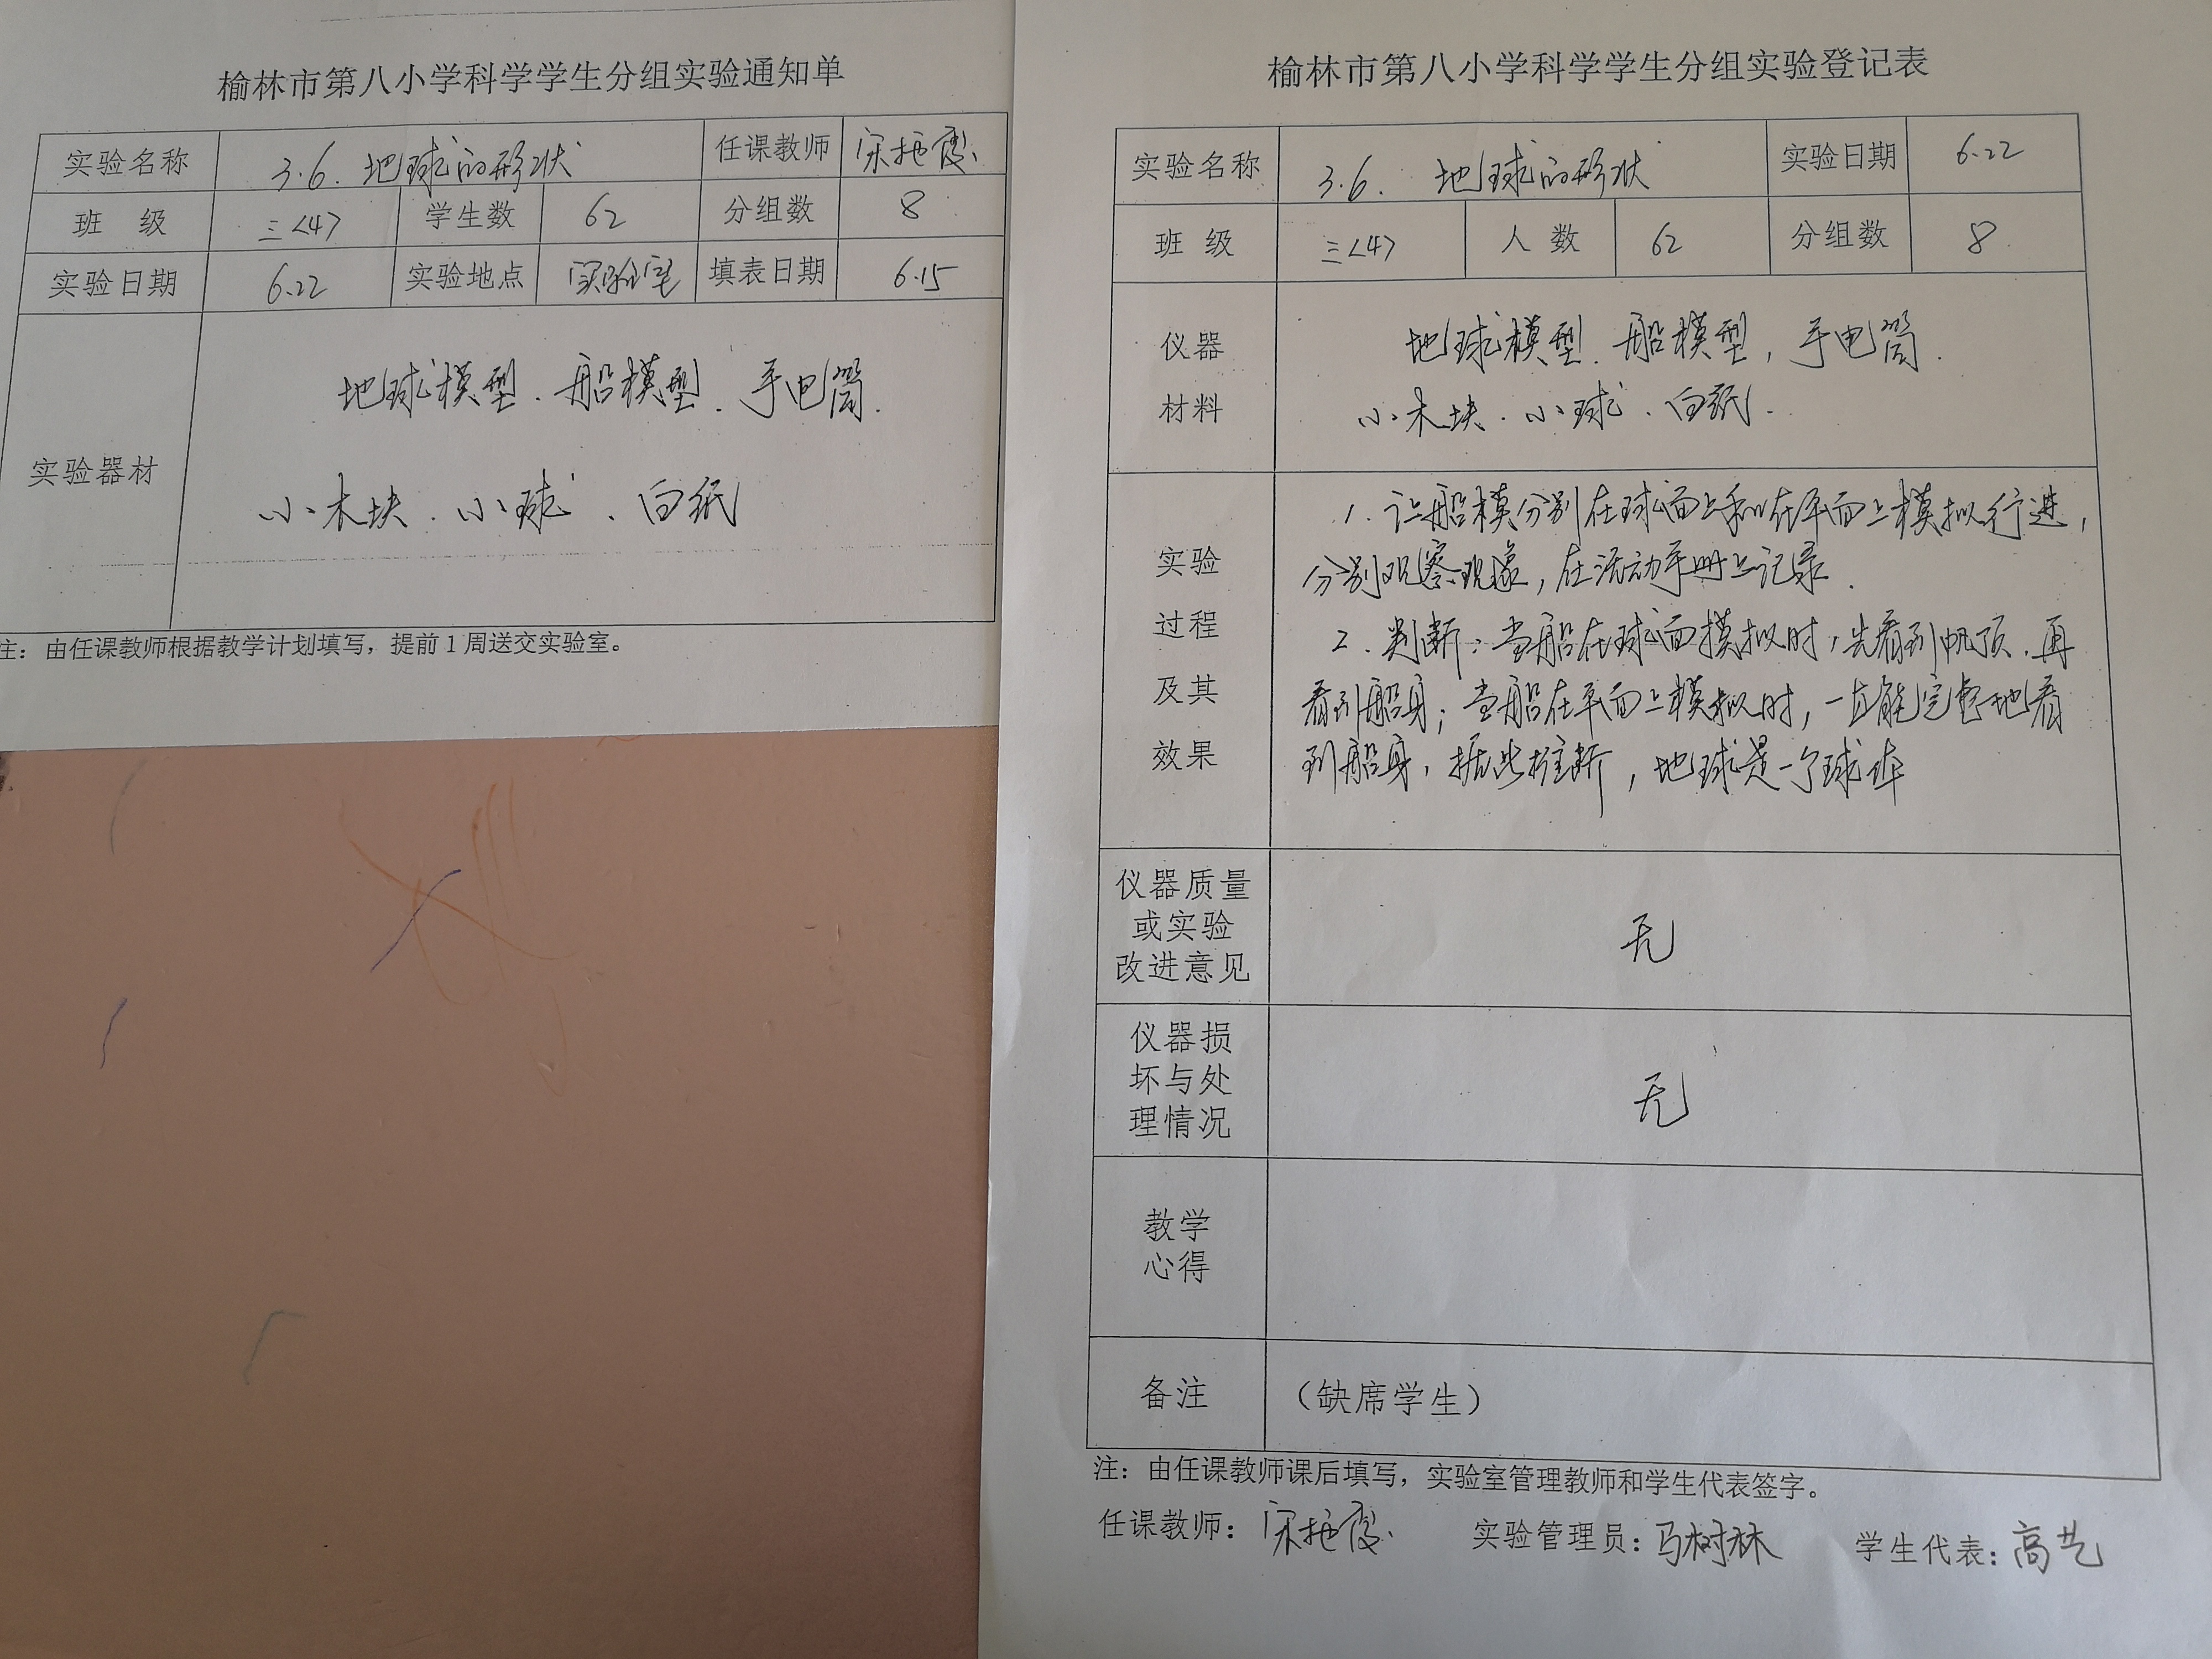 榆林市第八小学科学学生分组实验通知单
实验名称 3.6. 地球的形状 任课教师 宋拖霞
班 级 三<4> 学生数 62 分组数 8
实验日期 6.22 实验地点 实验室 填表日期 6.15
实验器材
地球模型、船模型、手电筒、
小木块、小球、白纸
注：由任课教师根据教学计划填写，提前1周送交实验室。
榆林市第八小学科学学生分组实验登记表
实验名称 3.6. 地球的形状 实验日期 6.22
班 级 三<4> 人 数 62 分组数 8
仪器
材料
地球模型、船模型，手电筒、
小木块、小球、白纸.
实验
过程
及其
效果
1. 让船模分别在球面上和在平面上模拟行进，
分别观察现象，在活动手册上记录.
2. 判断：当船在球面模拟时，先看到帆顶、再
看到船身；当船在平面上模拟时，一直能完整地看
到船身，据此推断，地球是一个球体
仪器质量
或实验
改进意见
无
仪器损
坏与处
理情况
无
教学
心得
备注 （缺席学生）
注：由任课教师课后填写，实验室管理教师和学生代表签字。
任课教师：宋拖霞 实验管理员：马树林 学生代表：高艺